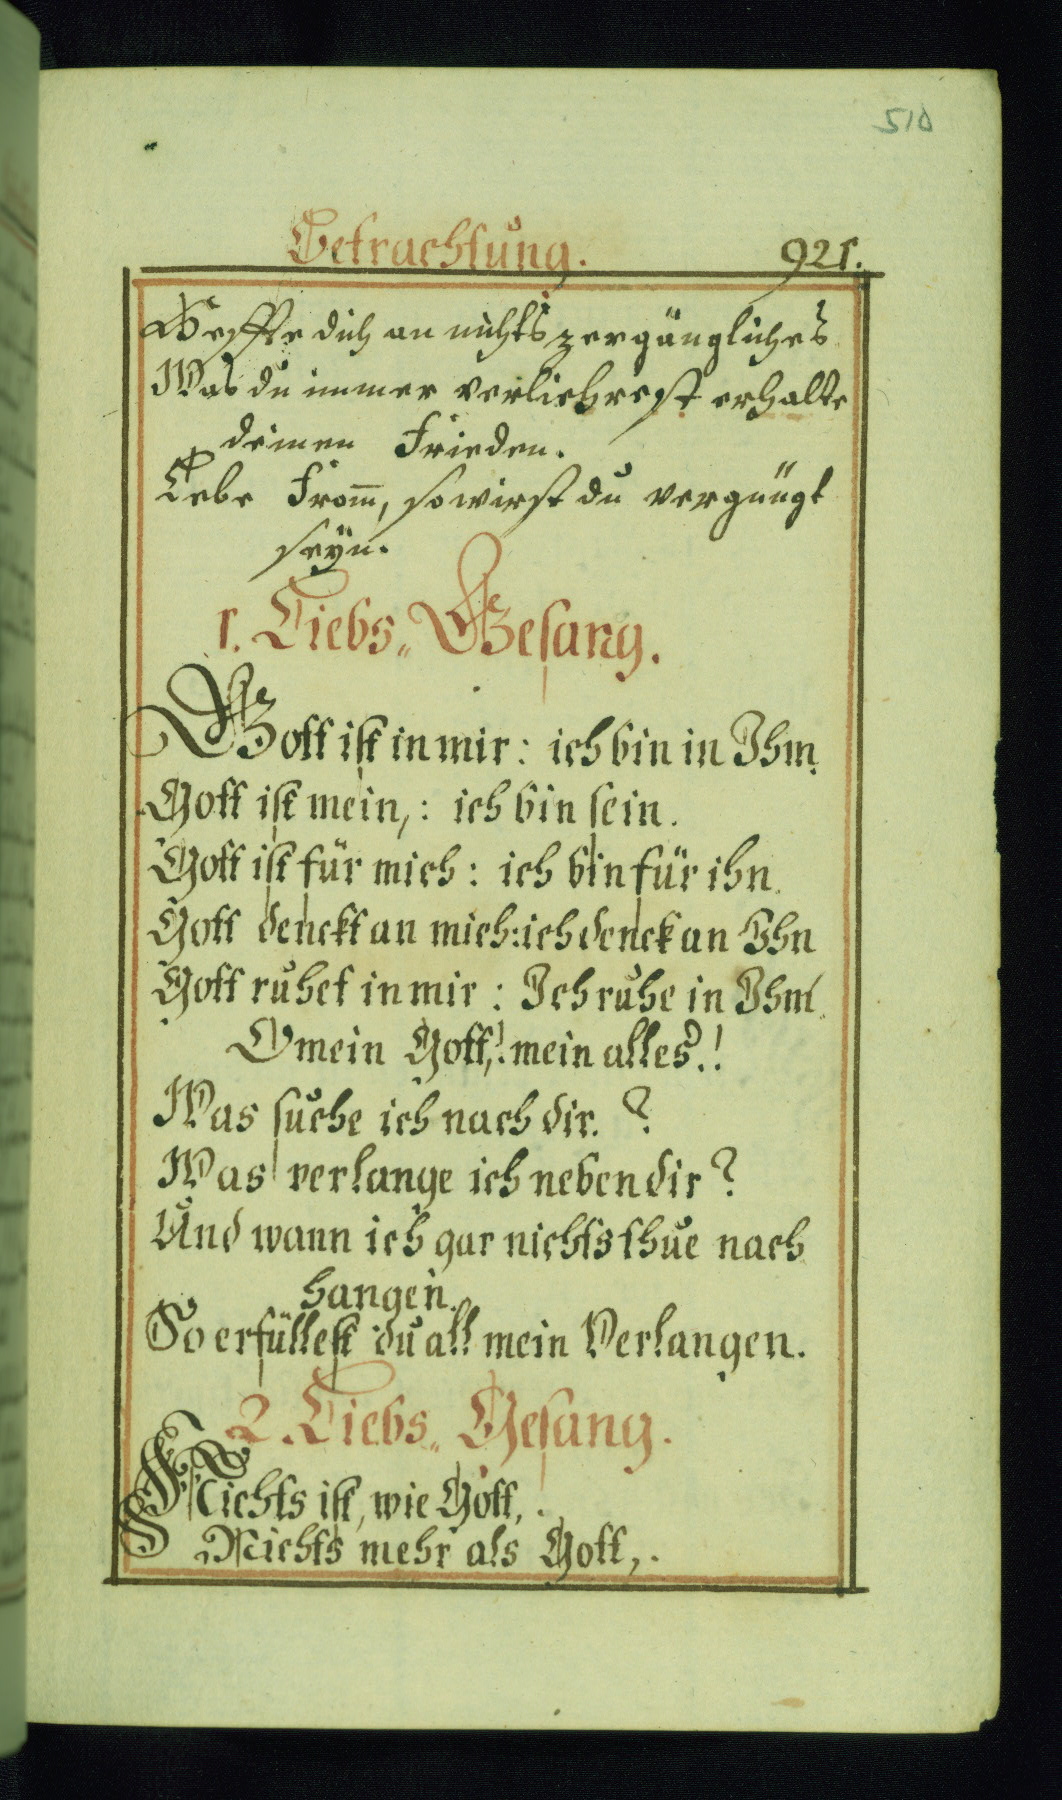 510
Betrachtung. 921.
Heffte dich an nichts zergängliches
Was du immer verliehrest erhalte
deinen Frieden.
Lebe From̅, so wirst du vergnügt
seÿn.
1. Liebs„ Gesang.
Gott ist in mir: ich bin in Ihm
Gott ist mein,: ich bin sein.
Gott ist für mich: ich bin für ihn
Gott denckt an mich: ich denck an Ihn
Gott ruhet in mir: Ich ruhe in Ihm
O mein Gott,! mein alles.!
Was suche ich nach dir. ?
Was verlange ich neben dir ?
Und wann ich gar nichts thue nach
hangen.
So erfüllest du all mein Verlangen.
2. Liebs„ Gesang.
Nichts ist, wie Gott,.
Nichts mehr als Gott,.